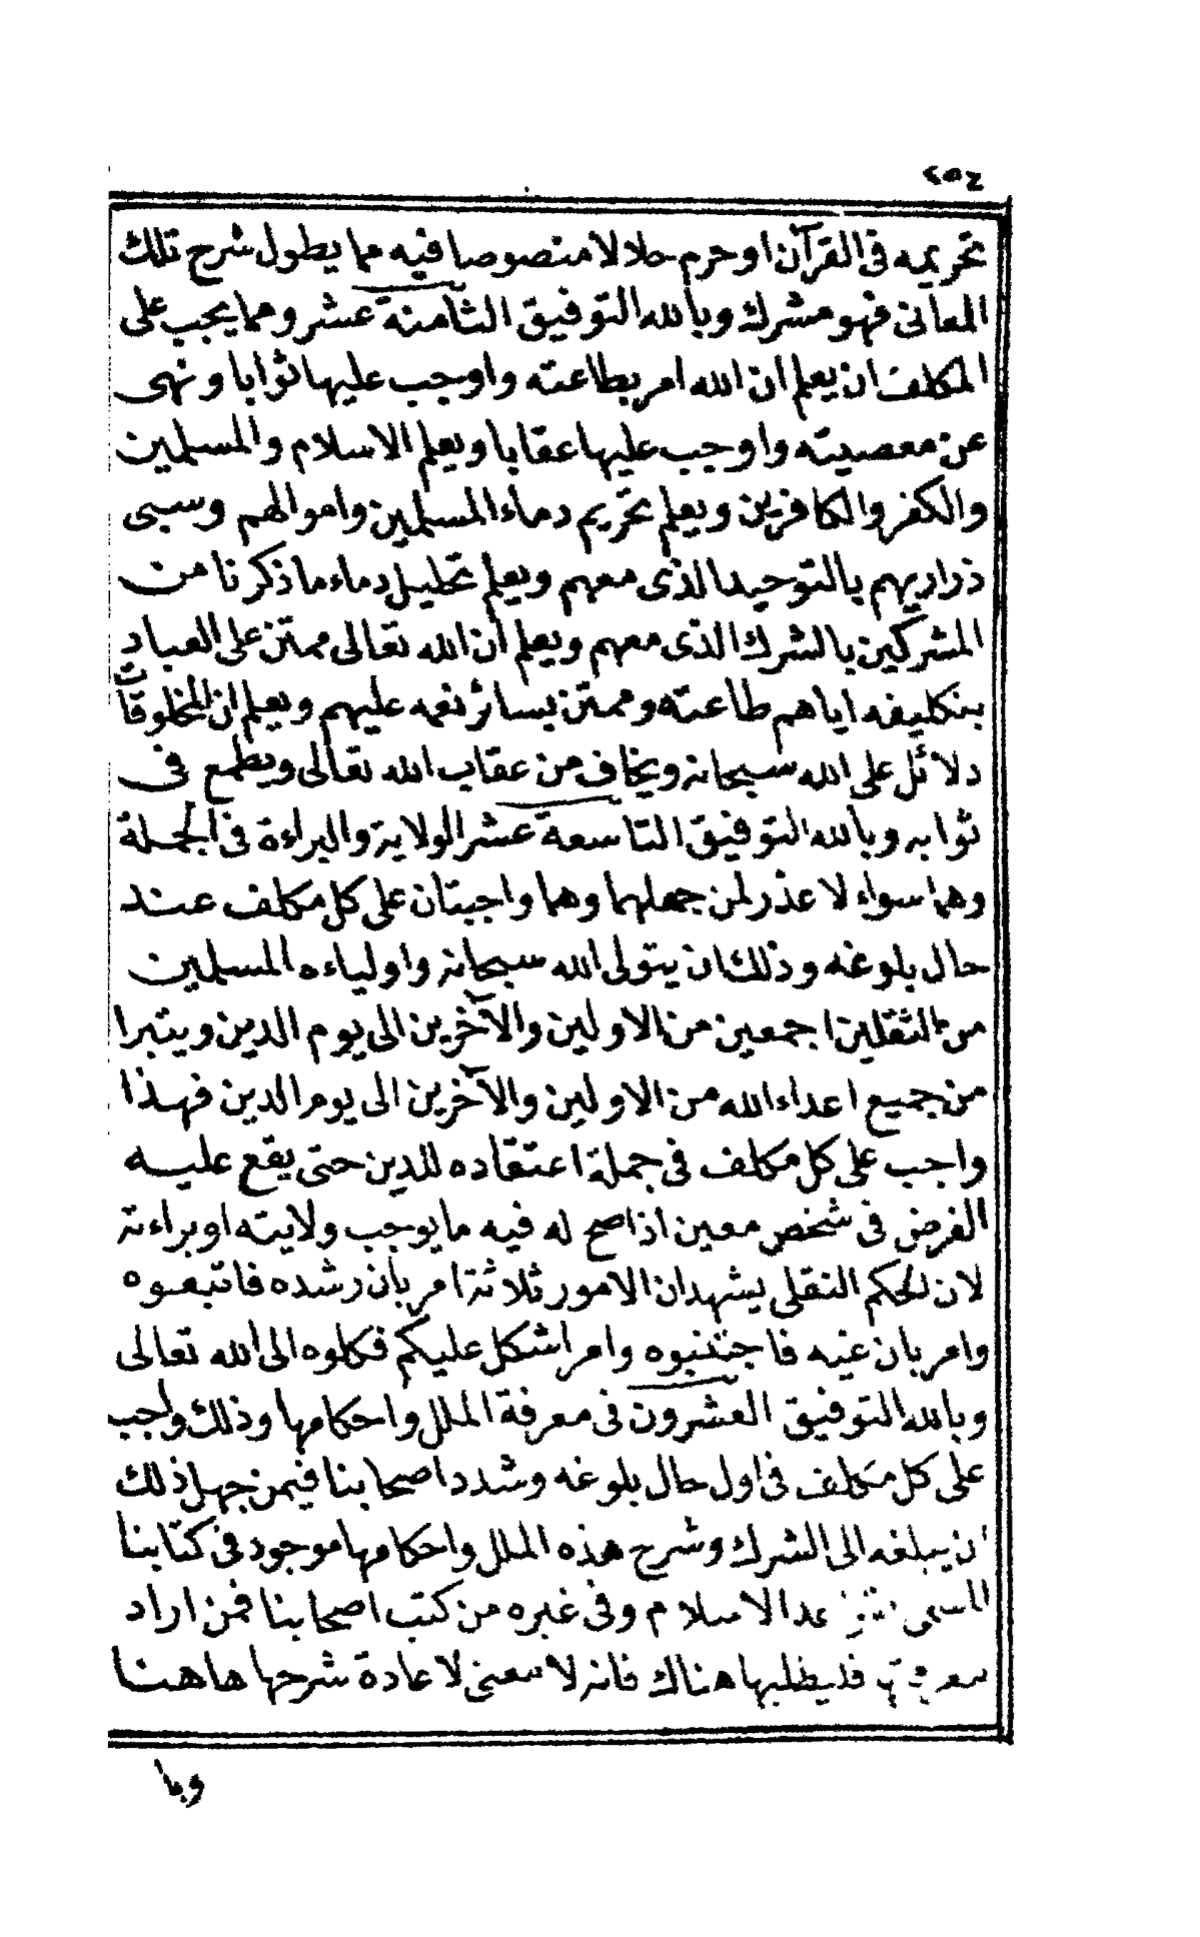 ٢٥٤
تحريمه فى القرآن او حرم حلالا منصوصا فيه مما يطول شرح تلك
المعانى فهو مشرك وبالله التوفيق الثامنة عشر ومما يجب على
المكلف ان يعلم ان الله امر بطاعته واوجب عليها ثوابا ونهى
عن معصيته واوجب عليها عقابا ويعلم الاسلام والمسلمين
والكفر والكافرين ويعلم تحريم دماء المسلمين واموالهم وسبى
ذراريهم بالتوحيد الذى معهم ويعلم تحليل دماء ما ذكرنا من
المشركين بالشرك الذى معهم ويعلم ان الله تعالى ممتن على العباد
بتكليفه اياهم طاعته وممتن بسائر نعمه عليهم ويعلم ان المخلوقات
دلائل على الله سبحانه ويخاف من عقاب الله تعالى ويطمع فى
ثوابه وبالله التوفيق التاسعة عشر الولاية والبراءة فى الجملة
وهما سواء لا عذر لمن جهلهما وهما واجبتان على كل مكلف عند
حال بلوغه وذلك ان يتولى الله سبحانه واولياءه المسلمين
من الثقلين اجمعين من الاولين والآخرين الى يوم الدين ويتبرا
من جميع اعداء الله من الاولين والآخرين الى يوم الدين فهذا
واجب على كل مكلف فى جملة اعتقاده للدين حتى يقع عليه
الفرض فى شخص معين اذا صح له فيه ما يوجب ولايته او براءته
لان الحكم النقلى يشهد ان الامور ثلاثة امر بان رشده فاتبعوه
وامر بان غيه فاجتنبوه وامر اشكل عليكم فكلوه الى الله تعالى
وبالله التوفيق العشرون فى معرفة الملل واحكامها وذلك واجب
على كل مكلف فى اول حال بلوغه وشدد اصحابنا فيمن جهل ذلك
ان يبلغه الى الشرك وشرح هذه الملل واحكامها موجود فى كتابنا
المسمى الاسلام وفى غيره من كتب اصحابنا فمن اراد
فليطلبها هناك فانه لا معنى لاعادة شرحها هاهنا
وبا